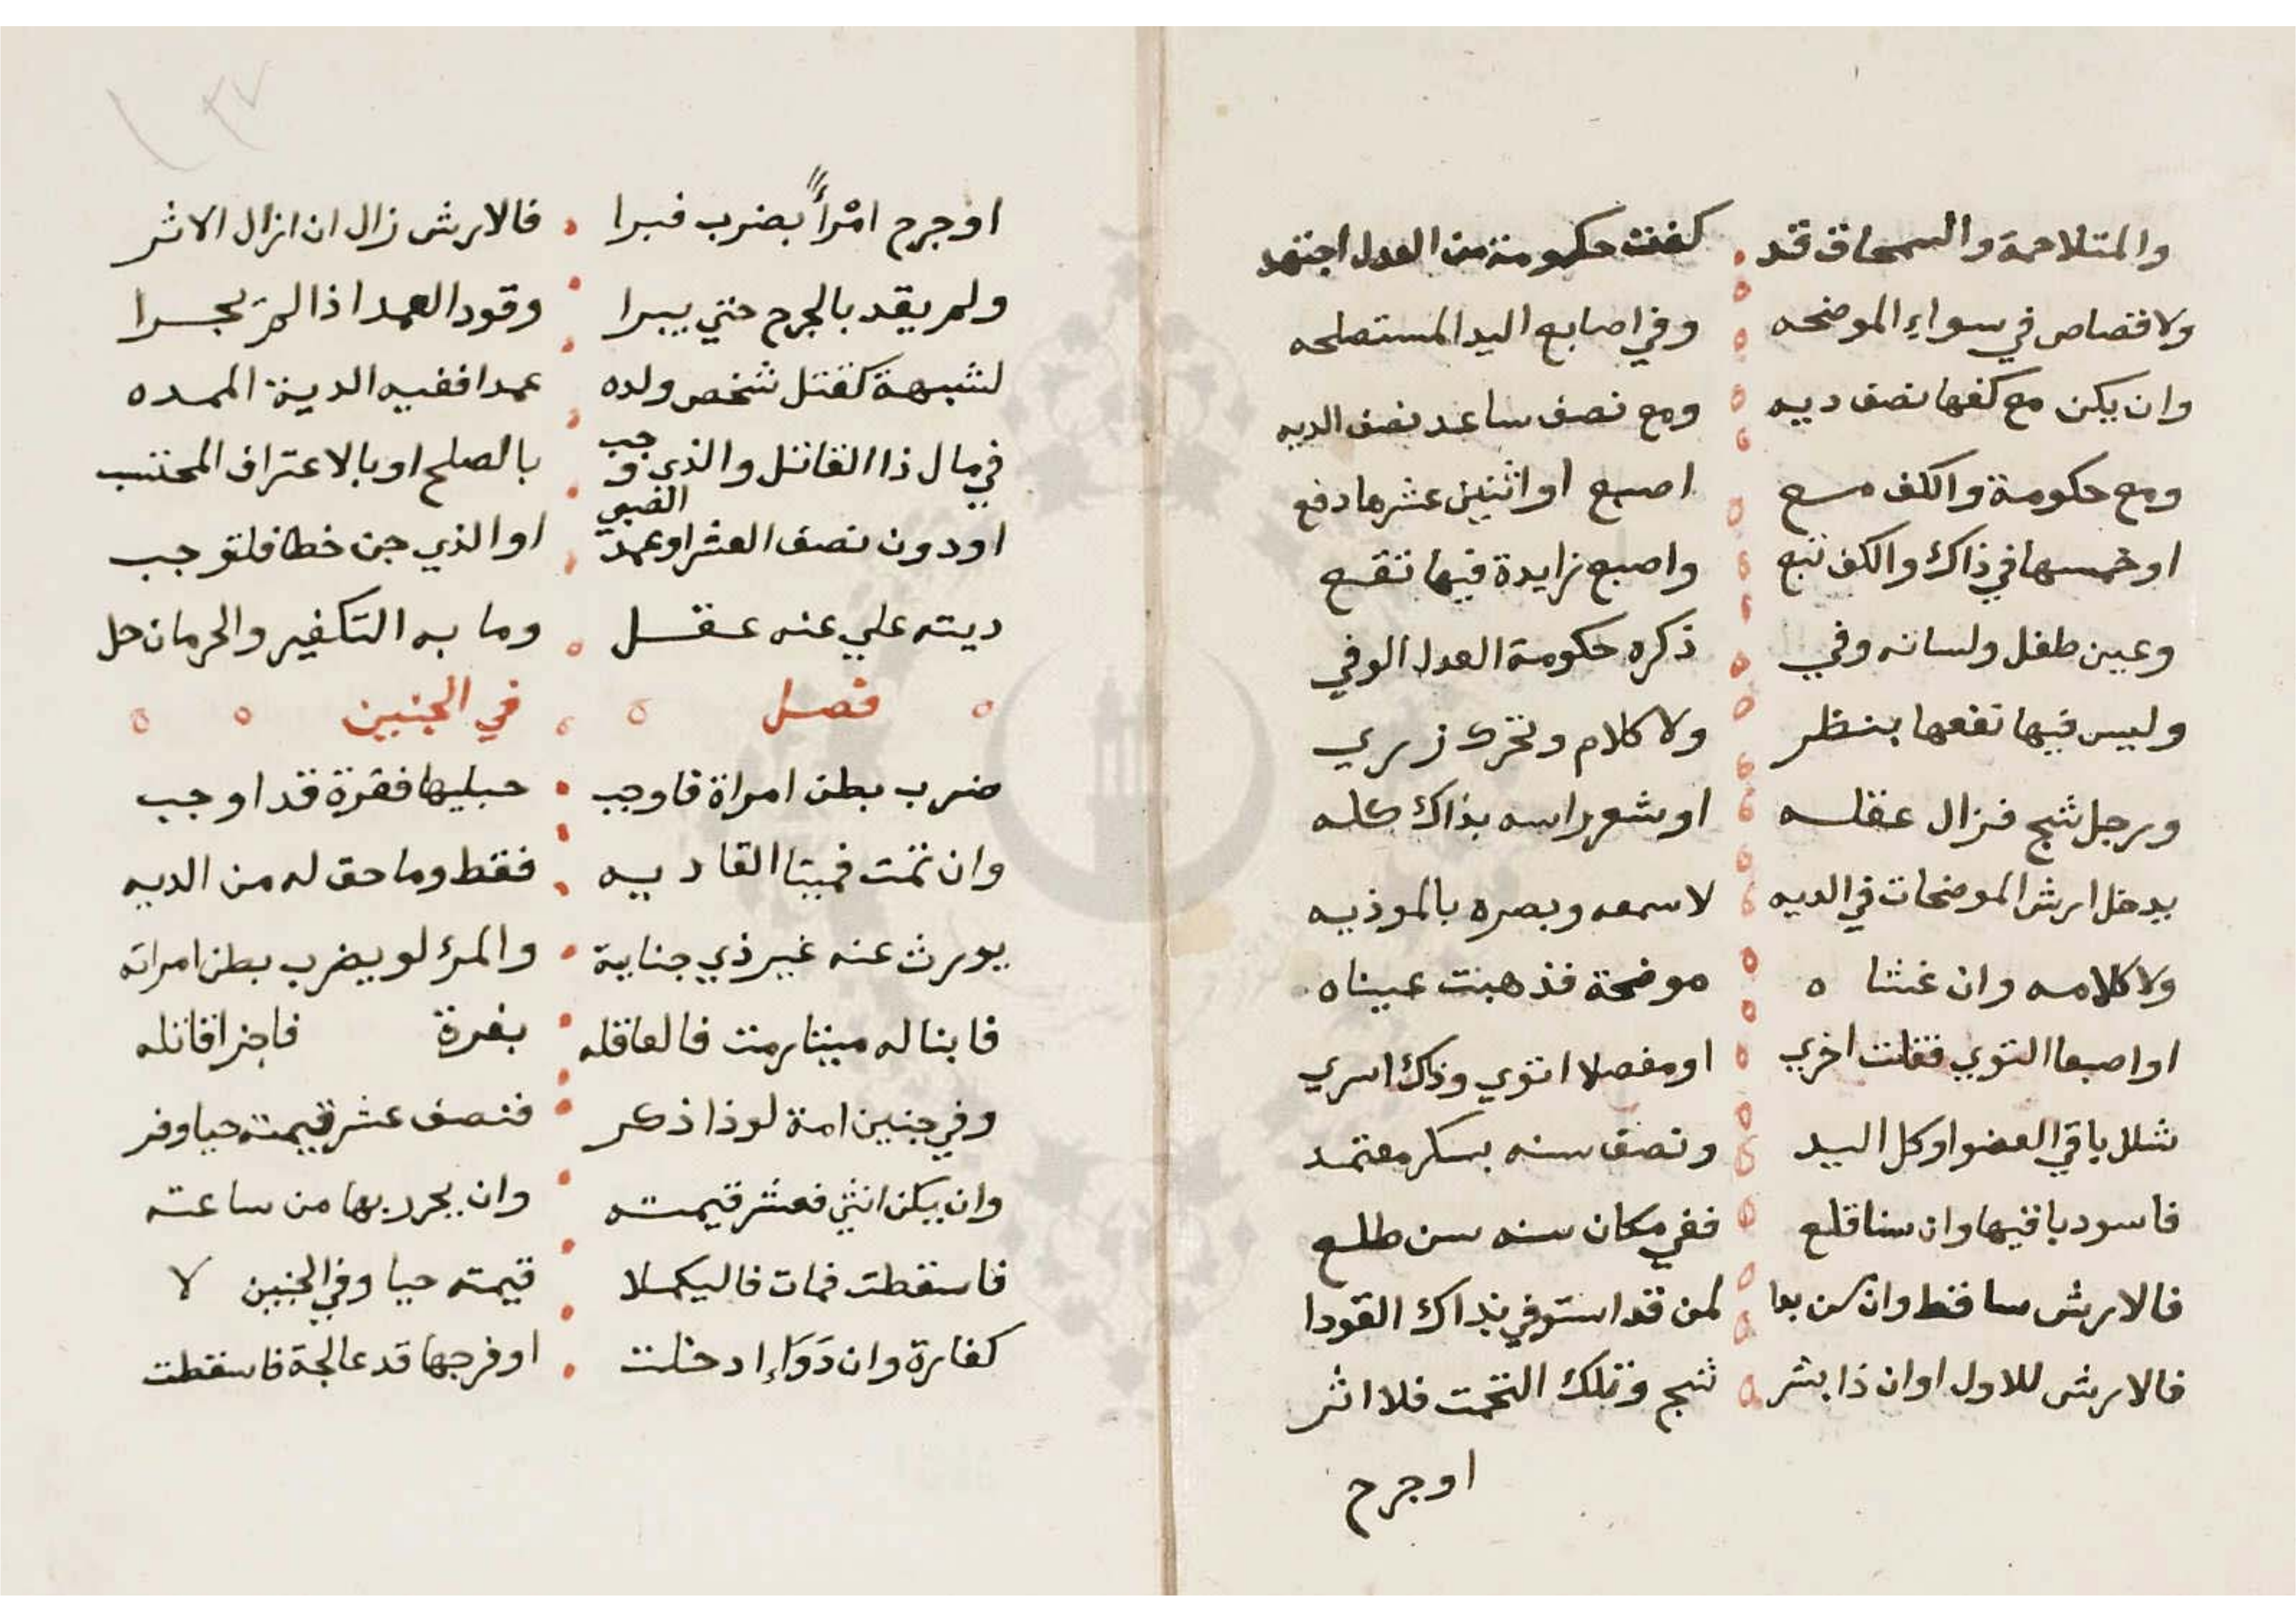 والمتلاحمة والسمحاق قد كفت حكومة من العدل اجتهد
ولا قصاص في سواء الموضحه وفي اصابع اليد المستصلحه
وان يكن مع كفها نصف ديه ومع نصف ساعد نصف الديه
ومع حكومة والكف مع اصبع او اثنين عشرها دفع
او خمسها في ذاك والكف تتبع واصبع زايدة فيها تقع
وعين طفل ولسانه وفي ذكره حكومة العدل الوفي
وليس فيها نفعها بنظر ولا كلام وتحرك زري
ورجل شج فزال عقله او شعر راسه بذاك كله
يدخل ارش الموضحات في الديه لا سمعه وبصره بالموذيه
ولا كلامه وان غشاه موضحة فذهبت عيناه
او اصبعا التوي فقلت اخري او مفصلا اتوي وذاك اسري
شلل باقي العضو او كل اليد ونصف سنه بسكر معتمد
فاسود باقيها وان سنا قلع ففي مكان سنه سن طلع
فالارش ساقط وان لمن قد استوفي بذاك القودا
فالارش للاول او ان ذا بشر شج وتلك التحمت فلا اثر
او جرح
١٣٧
او جرح امْرأً بضرب فبرا فالارش زال ان ازال الاثر
ولم يقد بالجرح حتي يبرا وقود العمد اذا لم يجرا
لشبهة كقتل شخص ولده عمدا ففيه الدية الممده
في مال ذا القاتل والذي وجب بالصلح او بالاعتراف المجتنب
او دون نصف العشر او عمد الصبي او الذي جن خطا فلتوجب
ديته علي عنه عقل وما به التكفير والحرمان حل
فصل في الجنين
ضرب بطن امراة فاوجب حبليها فغرة قد اوجب
وان تمت فميتا القا ديه فقط وما حق له من الديه
يورث عنه غير ذي جناية والمرئ لو يضرب بطن امراته
فابنا له ميتا رمت فالعاقله بغرة فاجزا قاتله
وفي جنين امة لو ذا ذكر فنصف عشر قيمته حيا وفر
وان يكن انثي فعشر قيمته وان يحرر بها من ساعته
فاسقطت فمات فاليكملا قيمته حيا وفي الجنين لا
كفارة وان دَوَاءِ ادخلت او فرجها قد عالجة فاسقطت